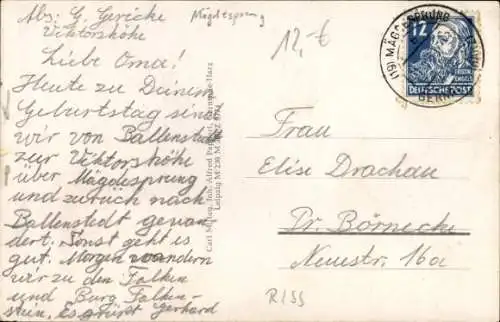 Abs. G. Gericke
Viktorshöhe
Mägdesprung
12,-€
Liebe Oma!
Heute zu Deinem
Geburtstag sind
wir von Ballenstedt
zur Viktorshöhe
über Mägdesprung
und zurück nach
Ballenstedt gewan
dert. Sonst geht es
gut. Morgen wandern
wir zu den Falken
und Burg Falken-
stein. Es grüßt Gerhard
Leipzig M 230
(19) MÄGDESPRUNG
12
DEUTSCHE POST
Frau
Elise Drachau
Pr. Börnecke
Neuestr. 16a
R155